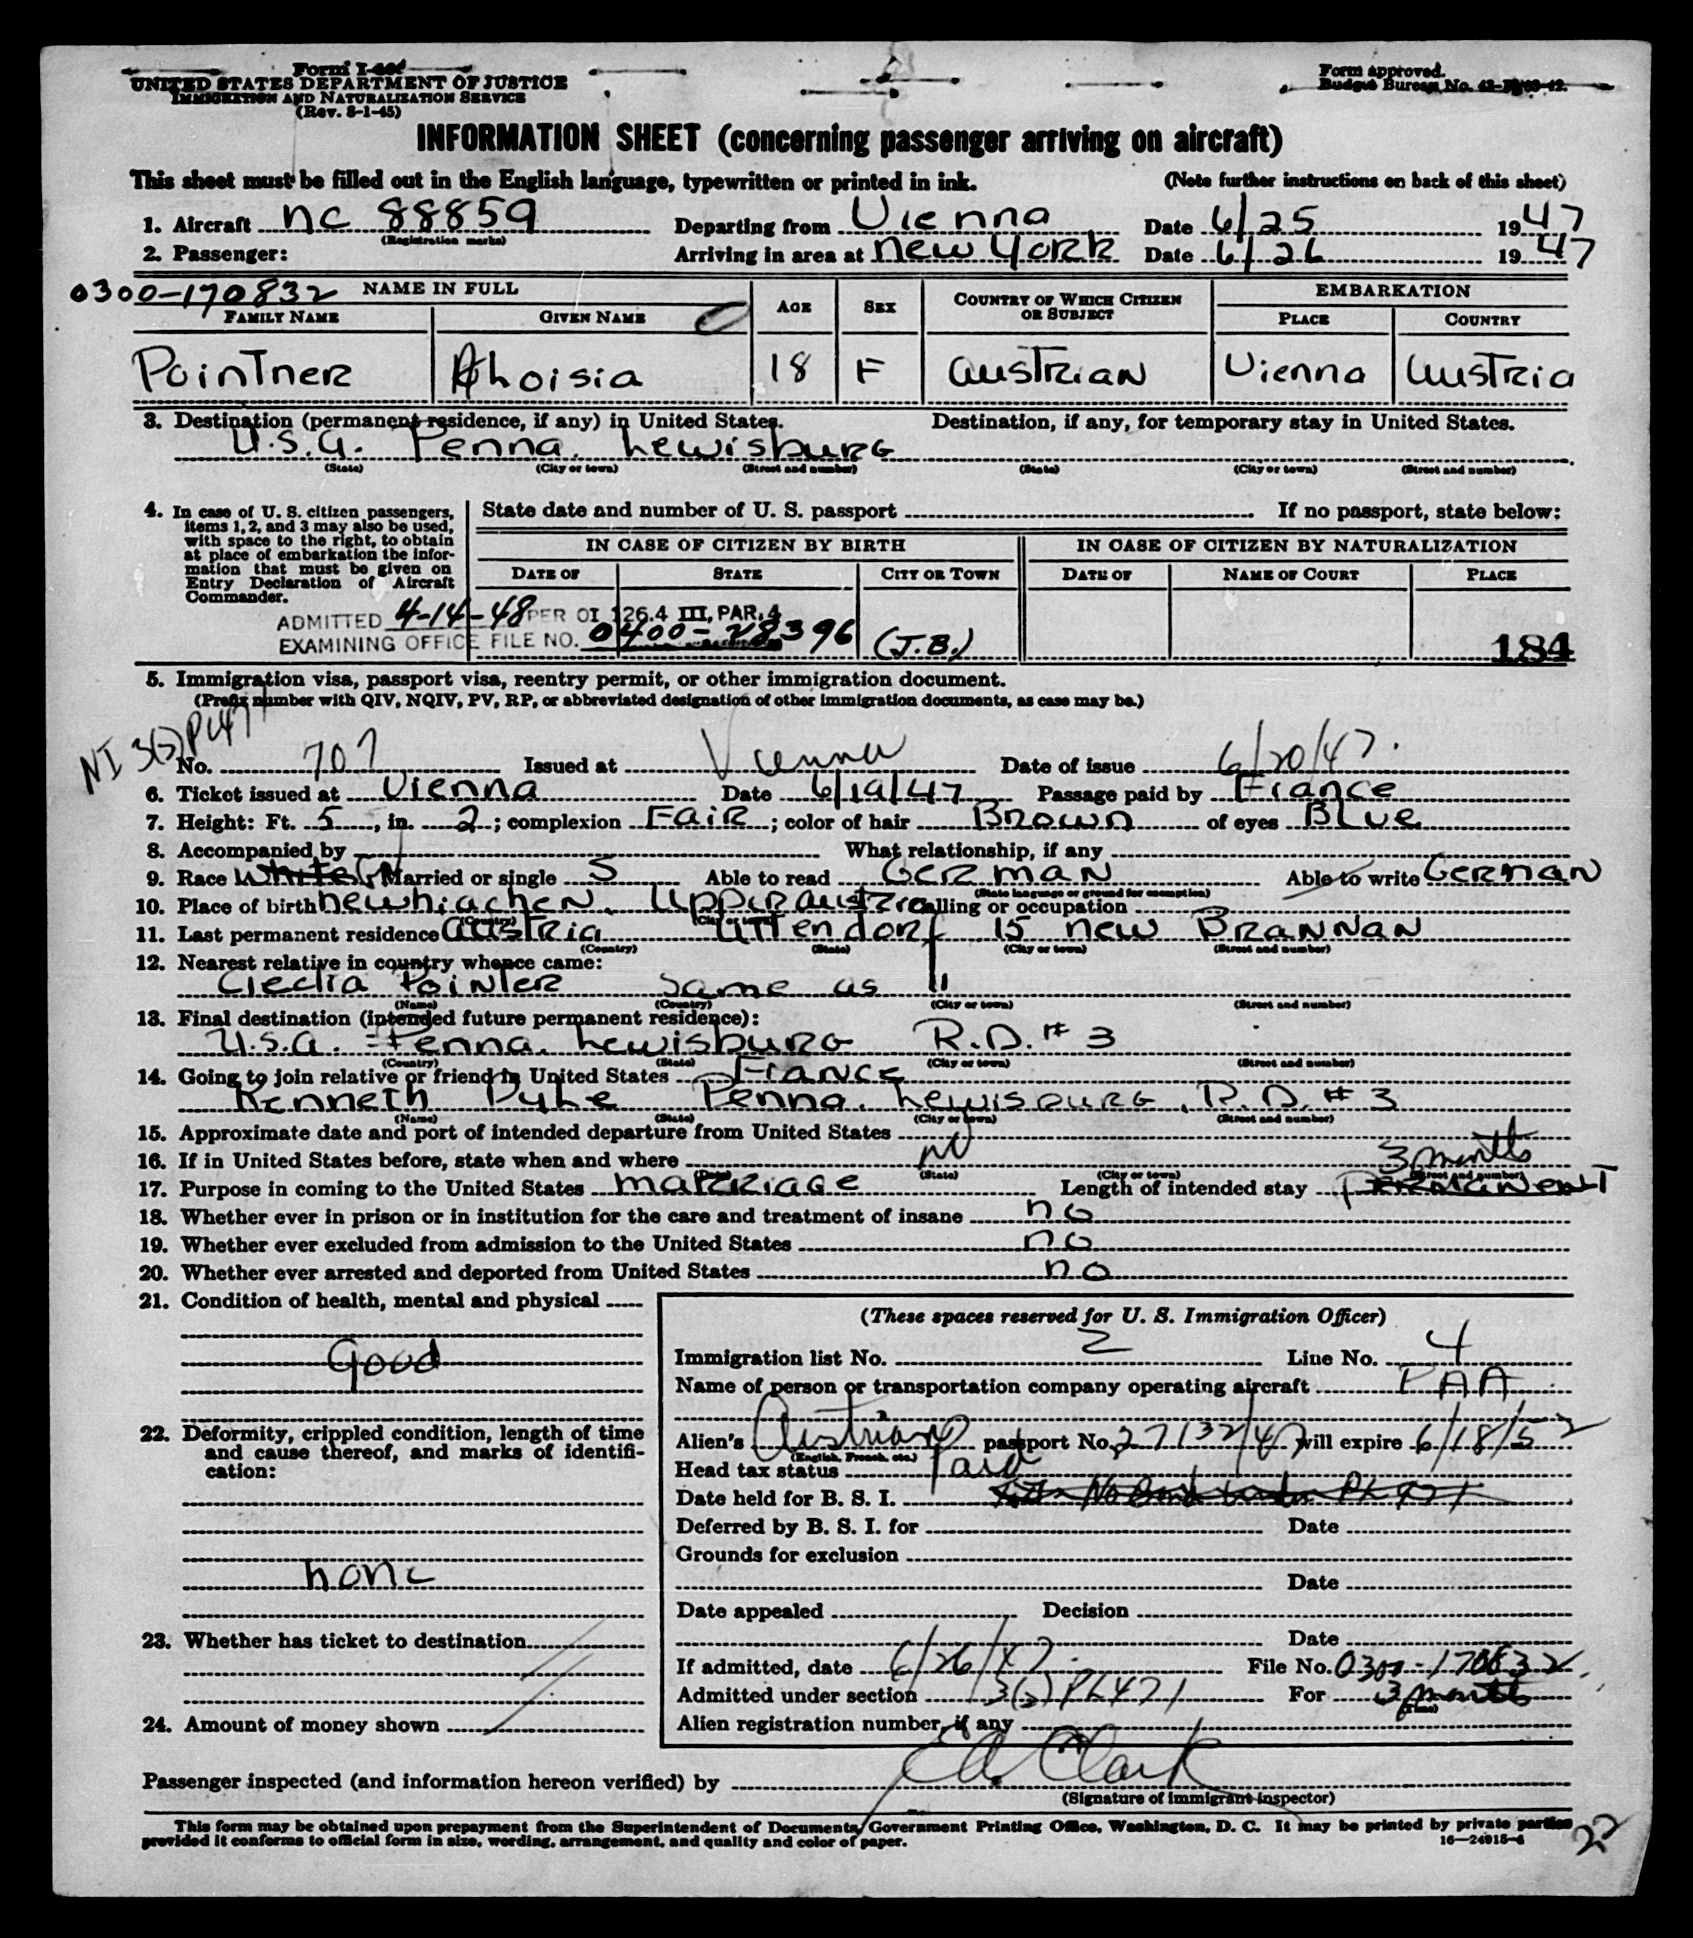 Form I-466
UNITED STATES DEPARTMENT OF JUSTICE
IMMIGRATION AND NATURALIZATION SERVICE
(Rev. 8-1-45)
Form approved.
Budget Bureau No.
INFORMATION SHEET (concerning passenger arriving on aircraft)
This sheet must be filled out in the English language, typewritten or printed in ink. (Note further instructions on back of this sheet)
1. Aircraft NC 88859 Departing from Vienna Date 6/25 1947
(Registration marks)
2. Passenger: Arriving in area at New York Date 6/26 1947
0300-170832 NAME IN FULL AGE SEX COUNTRY OF WHICH CITIZEN OR SUBJECT EMBARKATION
FAMILY NAME GIVEN NAME PLACE COUNTRY
Pointner Ahoisia 18 F Austrian Vienna Austria
3. Destination (permanent residence, if any) in United States. Destination, if any, for temporary stay in United States.
U.S.A. Penna. Lewisburg
(State) (City or town) (Street and number) (State) (City or town) (Street and number)
4. In case of U. S. citizen passengers, items 1, 2, and 3 may also be used, with space to the right, to obtain at place of embarkation the information that must be given on Entry Declaration of Aircraft Commander.
State date and number of U. S. passport If no passport, state below:
IN CASE OF CITIZEN BY BIRTH IN CASE OF CITIZEN BY NATURALIZATION
DATE OF STATE CITY OR TOWN DATE OF NAME OF COURT PLACE
ADMITTED 4-14-48 PER OI 126.4 III, PAR. 4
EXAMINING OFFICE FILE NO. 0400-28396 (J.B.) 184
5. Immigration visa, passport visa, reentry permit, or other immigration document.
(Prefix number with QIV, NQIV, PV, RP, or abbreviated designation of other immigration documents, as case may be.)
NI 3(3) PL471
No. 707 Issued at Vienna Date of issue 6/20/47.
6. Ticket issued at Vienna Date 6/19/47 Passage paid by Fiance
7. Height: Ft. 5, in. 2; complexion Fair; color of hair Brown of eyes Blue
8. Accompanied by What relationship, if any
9. Race White Married or single S Able to read German Able to write German
(State language or ground for exemption)
10. Place of birth Newhiachen, Upper Austria Calling or occupation
(Country) (City or town)
11. Last permanent residence Austria Uttendorf 15 New Brannan
(Country) (State) (City or town) (Street and number)
12. Nearest relative in country whence came:
Ciecilia Pointer Same as 11
(Name) (Country) (City or town) (Street and number)
13. Final destination (intended future permanent residence):
U.S.A. Penna. Lewisburg R.D. # 3
(Country) (State) (City or town) (Street and number)
14. Going to join relative or friend in United States Fiance
Kenneth Dyhe Penna. Lewisburg, R.D. # 3
(Name) (State) (City or town) (Street and number)
15. Approximate date and port of intended departure from United States
16. If in United States before, state when and where no 3 months
(Date) (State) (City or town) (Street and number)
17. Purpose in coming to the United States Marriage Length of intended stay Permanent
18. Whether ever in prison or in institution for the care and treatment of insane no
19. Whether ever excluded from admission to the United States no
20. Whether ever arrested and deported from United States no
21. Condition of health, mental and physical
Good
22. Deformity, crippled condition, length of time and cause thereof, and marks of identification:
none
23. Whether has ticket to destination
24. Amount of money shown
(These spaces reserved for U. S. Immigration Officer)
Immigration list No. 2 Line No. 4
Name of person or transportation company operating aircraft PAA
Alien's Austrian passport No. 27132/47 will expire 6/18/52
(English, French, etc.)
Head tax status Paid
Date held for B. S. I. No Bond under PL 471
Deferred by B. S. I. for Date
Grounds for exclusion
Date
Date appealed Decision
Date
If admitted, date 6/26/47. File No. 0300-170832
Admitted under section 3(3) PL471 For 3 months
(Time)
Alien registration number, if any
Passenger inspected (and information hereon verified) by EA Clark
(Signature of immigrant inspector)
This form may be obtained upon prepayment from the Superintendent of Documents, Government Printing Office, Washington, D. C. It may be printed by private parties
provided it conforms to official form in size, wording, arrangement, and quality and color of paper. 16—24915-4
22